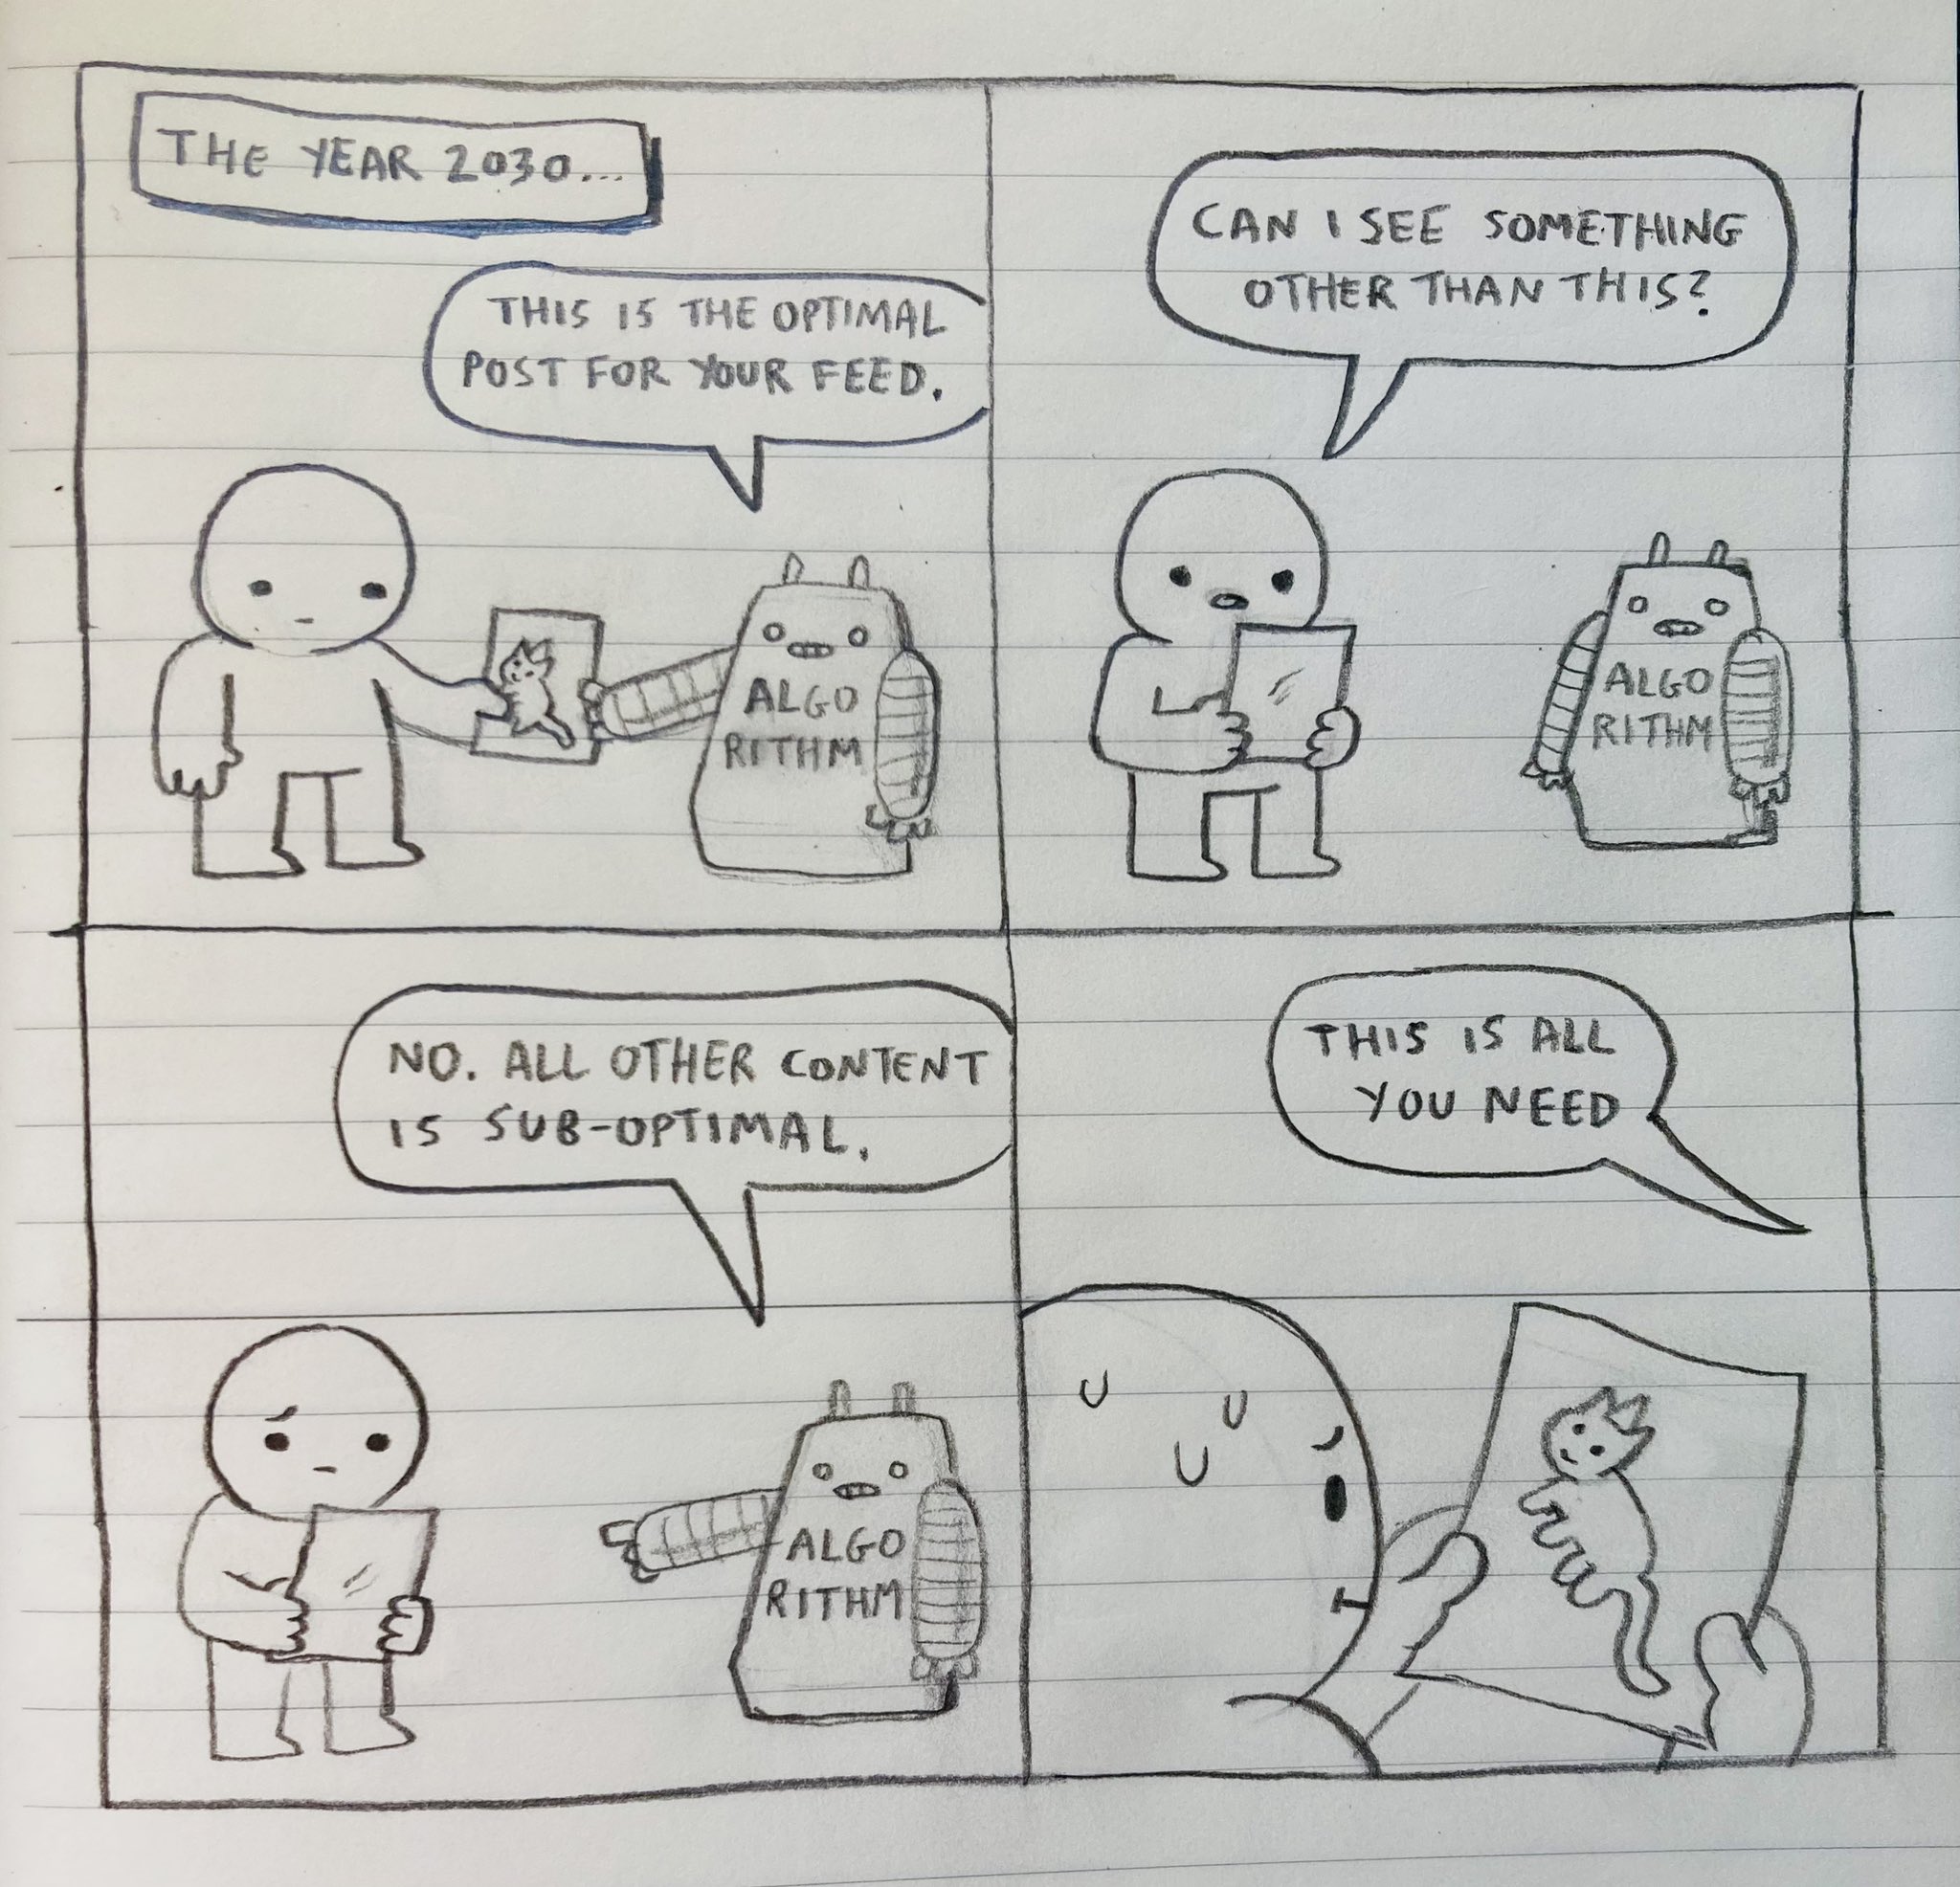 THE YEAR 2030...
THIS IS THE OPTIMAL
POST FOR YOUR FEED.
ALGO
RITHM
CAN I SEE SOMETHING
OTHER THAN THIS?
ALGO
RITHM
NO. ALL OTHER CONTENT
IS SUB-OPTIMAL.
ALGO
RITHM
THIS IS ALL
YOU NEED